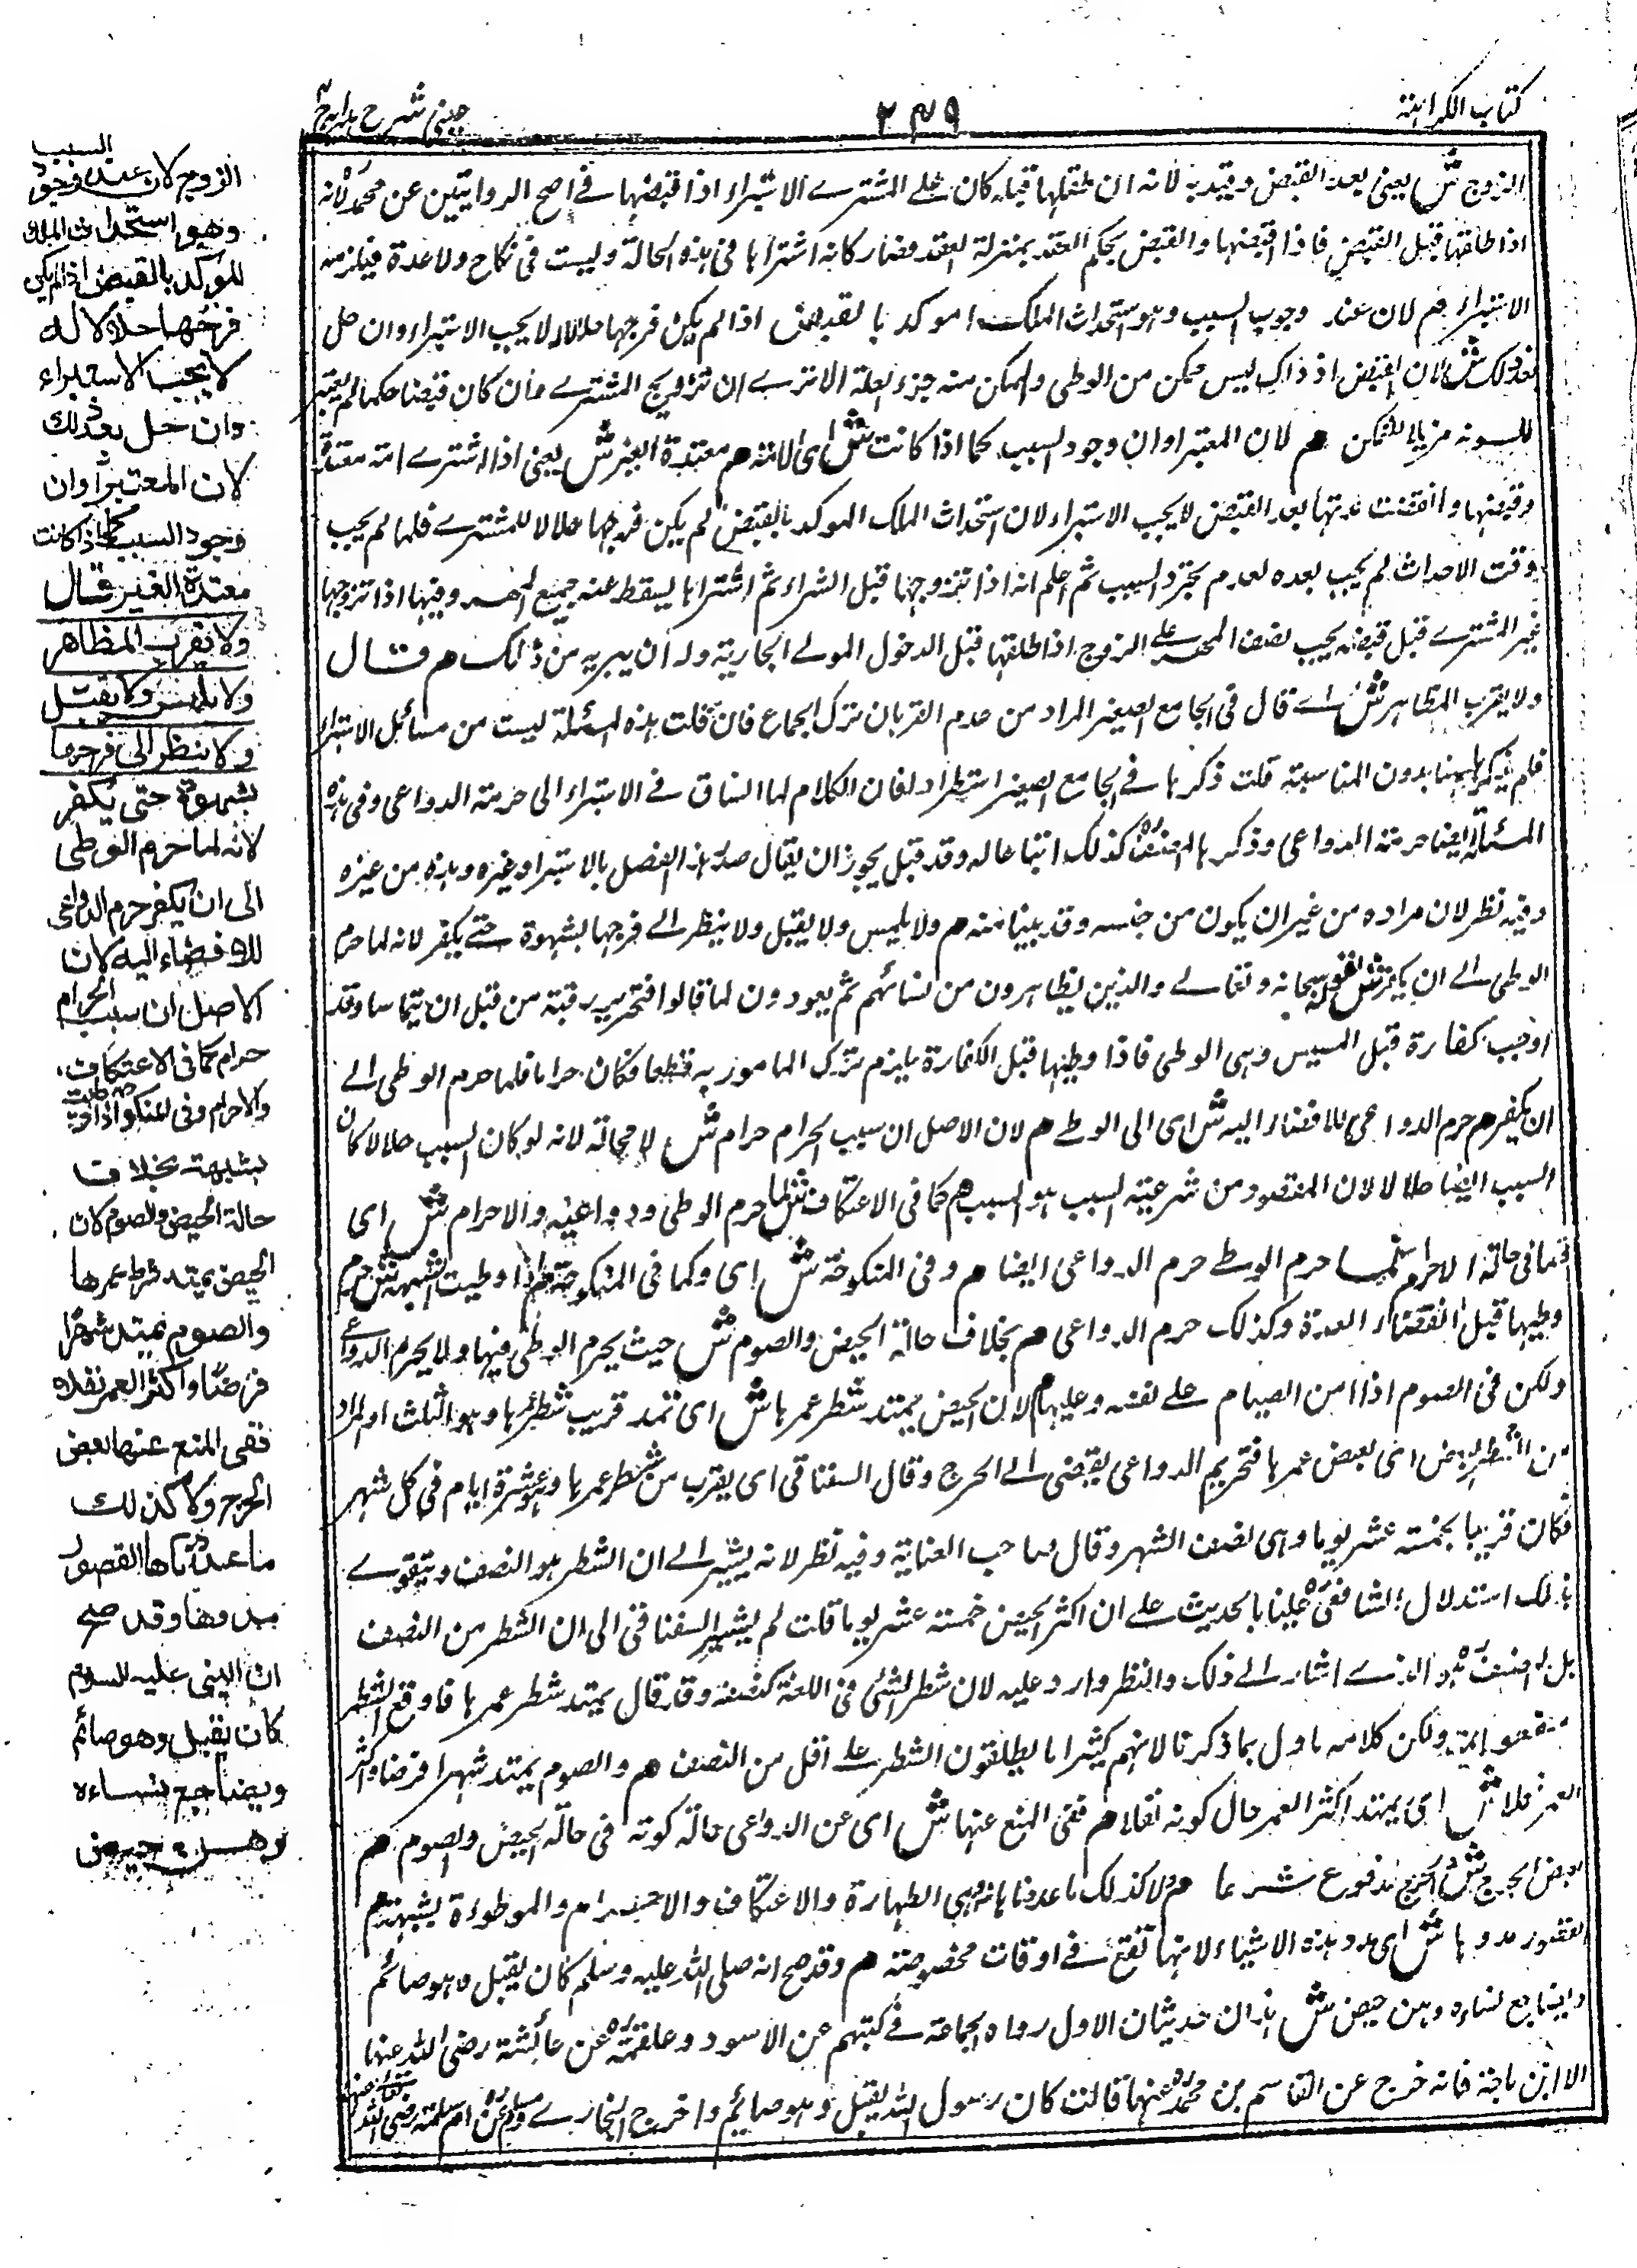 كتاب الكراهية
٢٣٩
عينى شرح هداية ج ٤
الزوج ش يعنى بعد القبض وقيد به لانه ان طلقها قبله كان على المشترى الاستبراء اذا قبضها فى اصح الروايتين عن محمد لانه
اذا طلقها قبل القبض فاذا قبضها والقبض بحكم العقد بمنزلة العقد فصار كانه اشتراها فى هذه الحالة وليست فى نكاح ولا عدة فيلزمه
الاستبراء هم لان عند وجوب السبب وهو استحداث الملك الموكد بالقبض اذا لم يكن فرجها حلالا له لا يجب الاستبراء وان حل
بعد ذلك ش لان القبض اذ ذاك ليس ممكن من الوطى والممكن منه جزء العلة الا ترى ان تزويج المشترى وان كان قبضا حكما لم يعتبر
للتمكن هم لان المعتبر اوان وجود السبب كما اذا كانت ش اى الامة هم معتدة الغير ش يعنى اذا اشترى امة معتدة
وقبضها وانقضت عدتها بعد القبض لا يجب الاستبراء لان استحداث الملك الموكد بالقبض لم يكن فرجها حلالا للمشترى فلما لم يجب
وقت الاحداث لم يجب بعده لعدم تجدد السبب ثم اعلم انه اذا تزوجها قبل الشراء ثم اشتراها يسقط عنه جميع المهر وفيها اذا تزوجها
غير المشترى قبل قبضه يجب نصف المهر على الزوج اذا طلقها قبل الدخول المولى الجارية وله ان يبريه من ذلك هم قال
ولا يقرب المظاهر ش اى قال فى الجامع الصغير المراد من عدم القربان ترك الجماع فان قلت هذه المسئلة ليست من مسائل الاستبراء
فلم يذكر ههنا بدون المناسبة قلت ذكرها فى الجامع الصغير استطراد لفان الكلام لما انساق فى الاستبراء الى حرمة الدواعى وفى هذه
المسئلة ايضا حرمة الدواعى وذكرها المصنف كذلك اتباعا له وقد قيل يجوز ان يقال صدر هذا الفصل بالاستبراء وغيره وهذه من غيره
وفيه نظر لان مراده من غير ان يكون من جنسه وقد بينا منه هم ولا يلمس ولا يقبل ولا ينظر الى فرجها بشهوة حتى يكفر لانه لما حرم
الوطى الى ان يكفر ش لقوله سبحانه وتعالى والذين يظاهرون من نسائهم ثم يعودون لما قالوا فتحرير رقبة من قبل ان يتماسا وقد
اوجب كفارة قبل المسيس وهى الوطى فاذا وطيها قبل الكفارة يلزم ترك المامور به قطعا فكان حراما فلما حرم الوطى الى
ان يكفر هم حرم الدواعى للافضاء اليه ش اى الى الوطى هم لان الاصل ان سبب الحرام حرام ش لا محالة لانه لو كان السبب حلالا كان
السبب ايضا حلالا لان المقصود من شرعية السبب هو المسبب هم كما فى الاعتكاف ش لما حرم الوطى ودواعيه والاحرام ش اى
كما فى حالة الاحرام لما حرم الوطى حرم الدواعى ايضا هم وفى المنكوحة ش اى وكما فى المنكوحة هم اذا وطيت بشبهة ش حرم
وطيها قبل انقضاء العدة وكذلك حرم الدواعى هم بخلاف حالة الحيض والصوم ش حيث يحرم الوطى فيها ولا يحرم الدواعى
ولكن فى الصوم اذا امن الصيام على نفسه وعليها هم لان الحيض يمتد شطر عمرها ش اى تمتد قريب شطر عمرها وهو الثلث او المراد
من الشطر البعض اى بعض عمرها فتحريم الدواعى يفضى الى الحرج وقال السغناقى اى يقرب من شطر عمرها وهو عشرة ايام فى كل شهر
فكان قريبا بخمسة عشر يوما وهى نصف الشهر وقال صاحب العناية وفيه نظر لانه يشير الى ان الشطر هو النصف ويتقوى
بذلك استدلال الشافعى علينا بالحديث على ان اكثر الحيض خمسة عشر يوما قلت لم يشير السغناقى الى ان الشطر من النصف
بل المصنف هو الذى اشار الى ذلك والنظر وارد عليه لان شطر الشئ فى اللغة كنصفه وقد قال يمتد شطر عمرها فاوقع الشطر
ولكن كلامه ماول بما ذكرنا لانهم كثيرا ما يطلقون الشطر على اقل من النصف هم والصوم يمتد شهرا فرضا واكثر
العمر نفلا ش اى يمتد اكثر العمر حال كونه نفلا هم ففى المنع عنها ش اى عن الدواعى حالة كونه فى حالة الحيض والصوم هم
بعض الحرج ش والحرج مدفوع شرعا هم ولا كذلك ما عددناها وهى الطهارة والاعتكاف والاحرام والموطوءة بشبهة هم
لقصور مددها ش اى مدد هذه الاشياء لانها تقع فى اوقات مخصوصة هم وقد صح انه صلى الله عليه وسلم كان يقبل وهو صائم
ويضاجع نساءه وهن حيض ش هذان حديثان الاول رواه الجماعة فى كتبهم عن الاسود وعلقمة عن عائشة رضى الله عنها
الا ابن ماجة فانه خرج عن القاسم بن محمد عنها قالت كان رسول الله يقبل وهو صائم واخرج البخارى ومسلم عن ام سلمة رضى الله تعالى عنها
الزوج لان عند وجود السبب
وهو استحداث الملك
الموكد بالقبض اذا لم يكن
فرجها حلالا له
لا يجب الاستبراء
وان حل بعد ذلك
لان المعتبر اوان
وجود السبب كما اذا كانت
معتدة الغير قال
ولا يقرب المظاهر
ولا يلمس ولا يقبل
ولا ينظر الى فرجها
بشهوة حتى يكفر
لانه لما حرم الوطى
الى ان يكفر حرم الدواعى
للافضاء اليه لان
الاصل ان سبب الحرام
حرام كما فى الاعتكاف
والاحرام وفى المنكوحة اذا وطيت
بشبهة بخلاف
حالة الحيض والصوم لان
الحيض يمتد شطر عمرها
والصوم يمتد شهرا
فرضا واكثر العمر نفلا
ففى المنع عنها بعض
الحرج ولا كذلك
ما عددناها لقصور
مددها وقد صح
ان النبى عليه السلام
كان يقبل وهو صائم
ويضاجع نساءه
وهن حيض